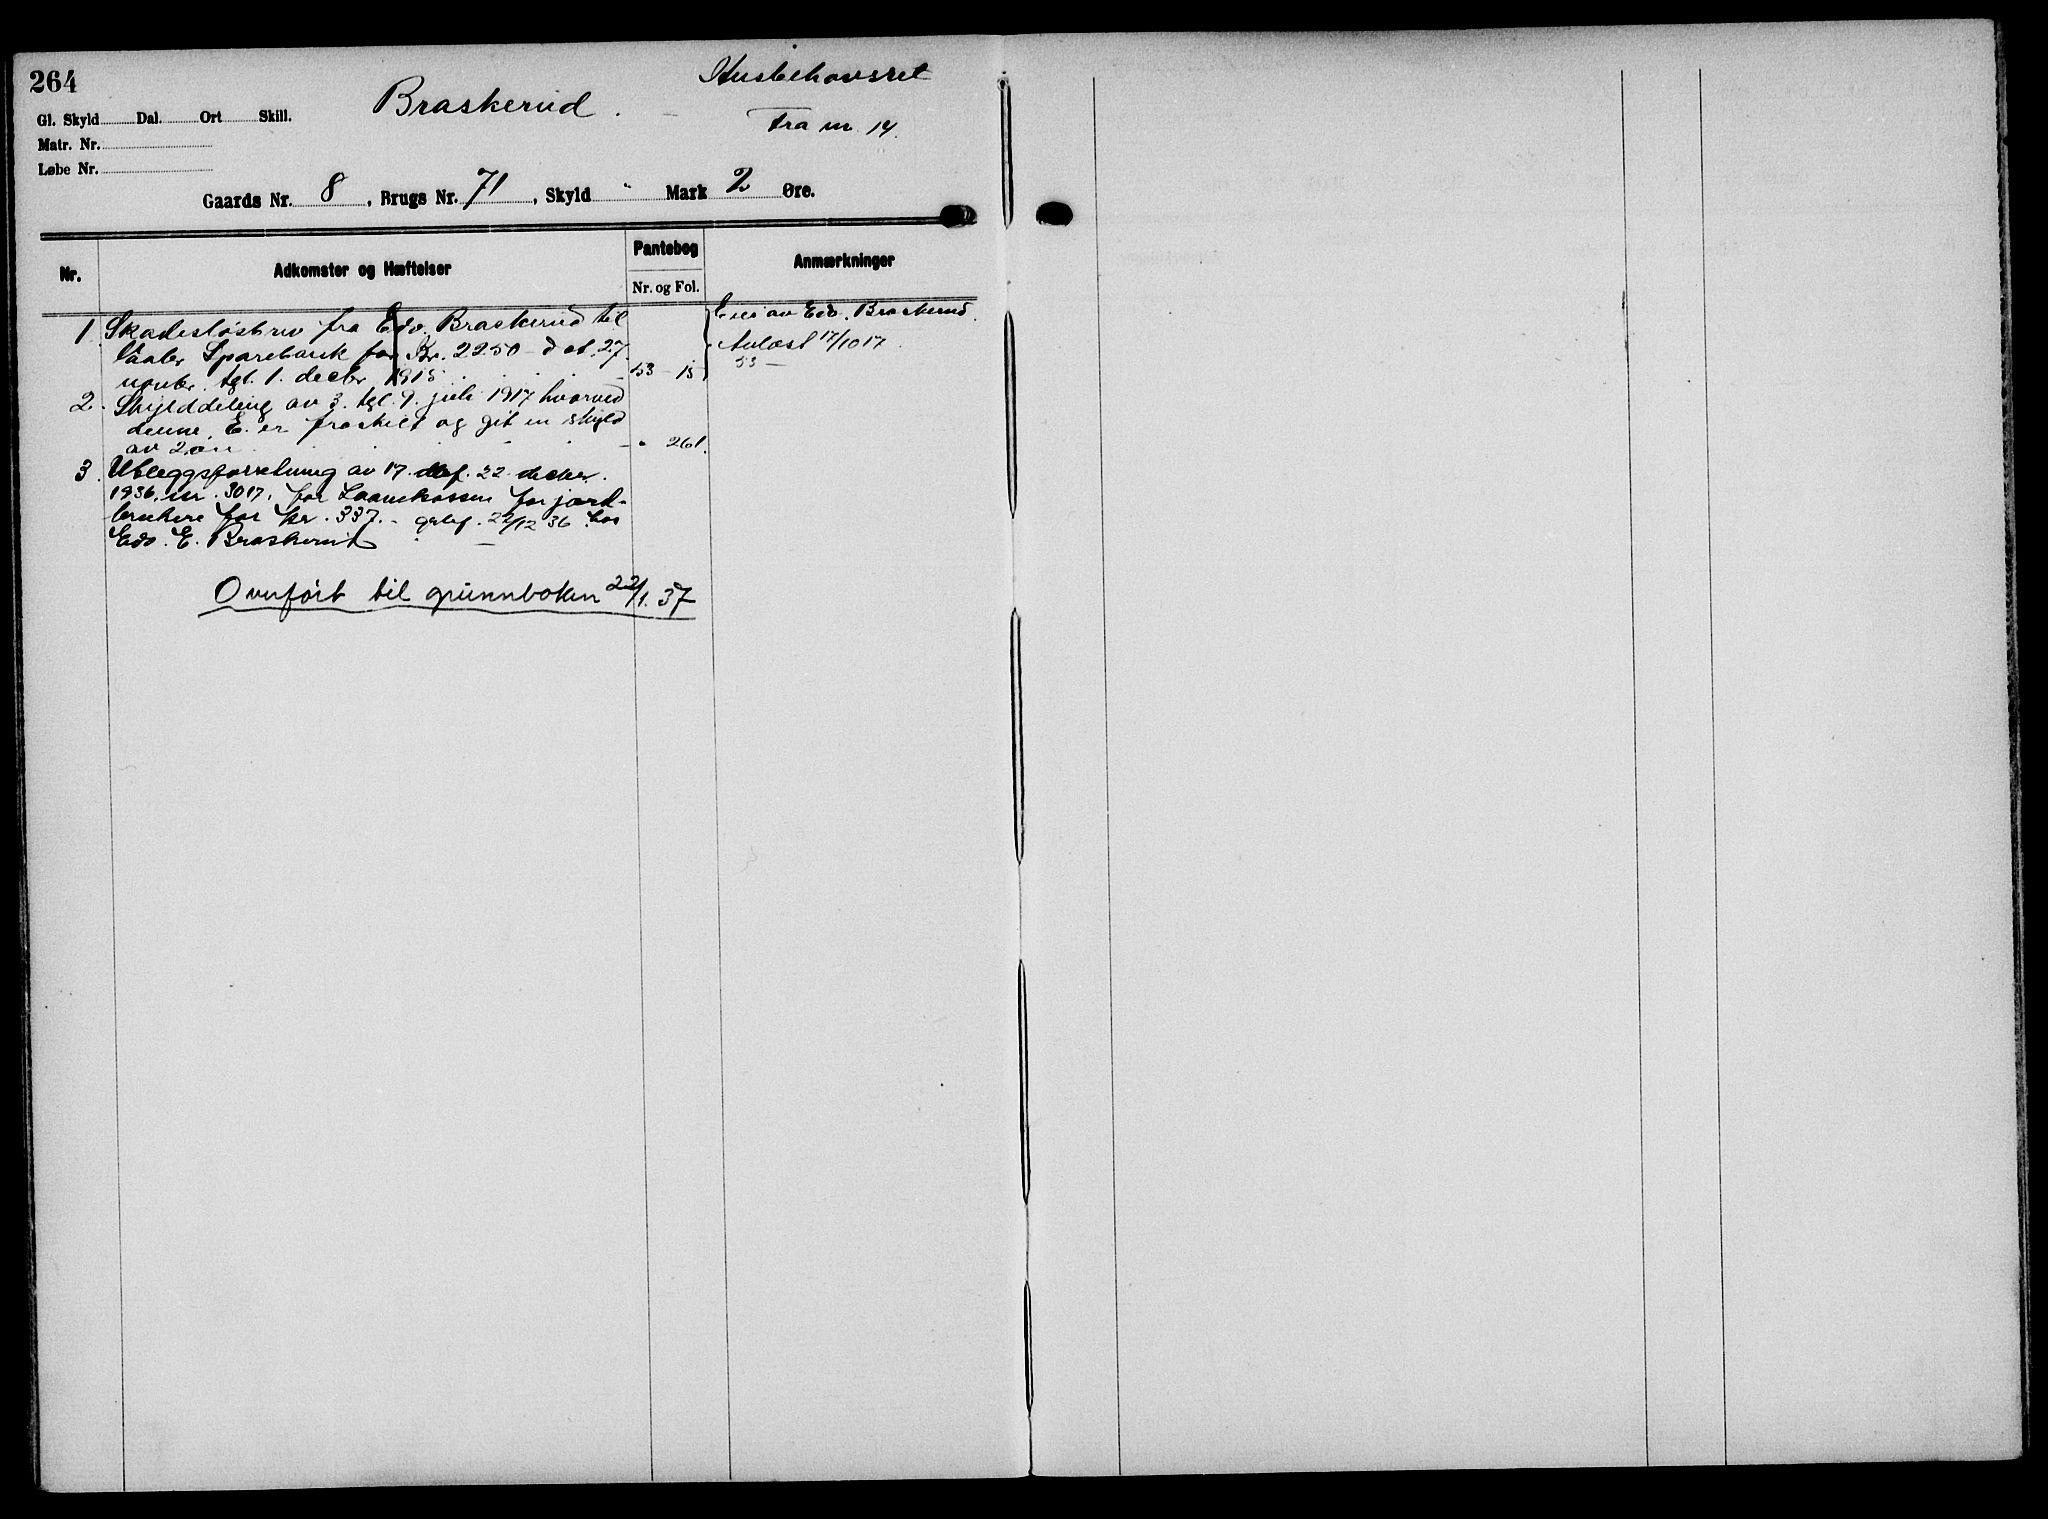 264
Husbehovsret
Braskerud.
Fra nr. 14.
Gl. Skyld Dal. Ort Skill.
Matr. Nr.
Løbe Nr.
Gaards Nr. 8, Brugs Nr. 71, Skyld " Mark 2 Øre.
Nr.
Adkomster og Hæftelser
Pantebog
Nr. og Fol.
Anmærkninger
1 Skadesløsbrev fra Edv. Braskerud til
Vaaler Sparebank for Kr. 2250 - dat. 27
novbr. tgl. 1. decbr 1915 53 - 15
Eies av Edv. Braskerud.
Avlæst 17/10 17
53 -
2. Skylddeling av 3. tgl. 9. juli 1917 hvorved
denne E. er fraskilt og git en skyld
av 2 øre " 261.
3. Utlæggsforretning av 17. 22. decbr.
1936, nr. 3017, for Laanekassen for jord-
brukere for kr. 337. - 22/12 36 hos
Edv. E. Braskerud
Overført til grunnboken 22/1. 37